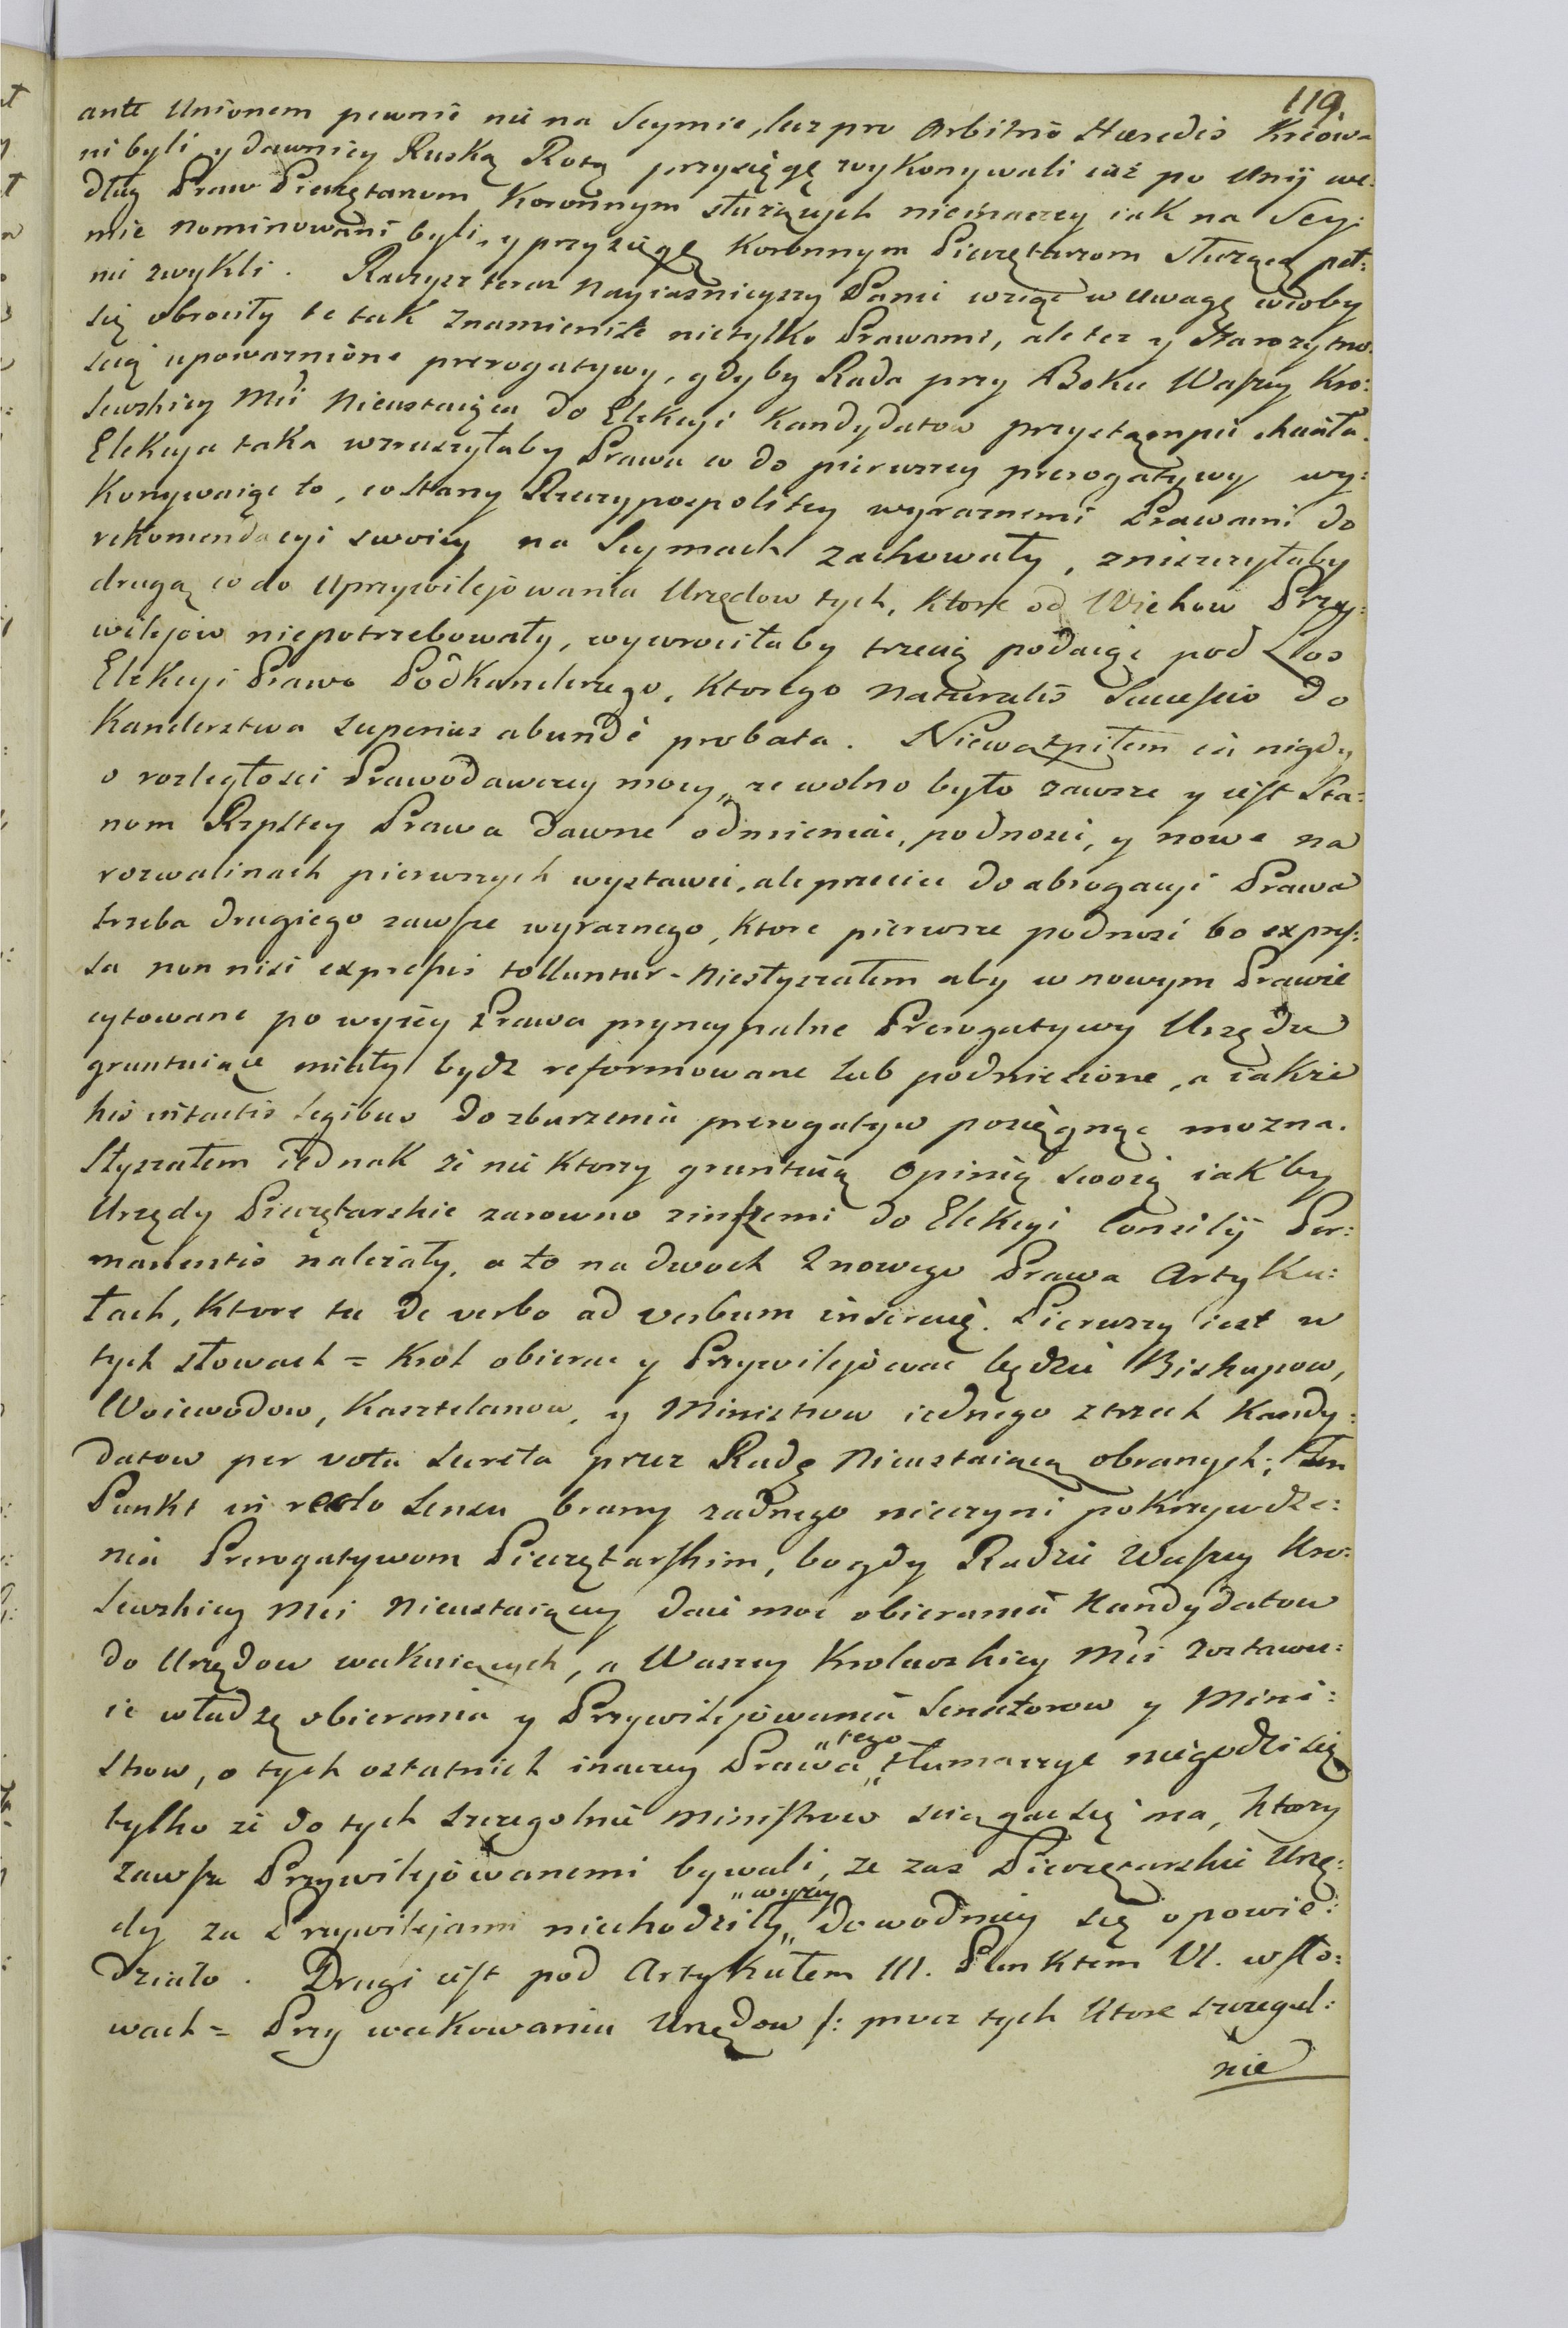 119.
ante Unionem pewnie nie na Seymie, lecz pro Arbitrio Hæredis Kreowa-
ni byli, y dawniey Ruską Rotą przysięgę wykonywali iuż po Unij we:
dług Praw Pieczętarom Koronnym służących nieinaczey iak na Sey:
mie nominowani byli, y przysięgę Koronnym Pieczętarzom służącą peł:
nić zwykli. Racżysz teraz Nayiasnieyszy Panie wziąć w uwagę wcoby
się obrociły te tak Znamienite nietylko Prawami, ale tez y Starozytno:
scią upowaznione prerogatywy, gdyby Rada przy Boku Waszey Kro:
lewskiey Mci Nieustaiąca do Elekcyi Kandydatow przystąmpić chciała.
Elekcya taka wzruszyłaby Prawa co do pierwszey prerogatywy wy:
konywaiąc to, co Stany Rzeczypospolitey wyraznemi Prawami do
rekomendacyi swoiey na Seymach zachowały, zniszczyłaby
drugą co do Uprzywilejowania Urzędow tych, ktore od Wiekow Przy:
wilejow niepotrzebowały, wywrociłaby trzecią podaiąc pod Los
Elekcyi Prawo Podkanclerzego, ktorego naturalis Successio do
Kanclerstwa superius abundè probata. Niewątpiłem ia nigdy
o rozległosci Prawodawczey mocy,, ze wolno było zawsze y iest Sta:
nom Rzpltey Prawa dawne odmieniać, podnosić, y nowe na
rozwalinach pierwszych wystawić, ale przecie do abrogacyi Prawa
trzeba drugiego zawsze wyraznego, ktore pierwsze podnosi bo expres:
sa non nisi expressis tolluntur - Niesłyszałem aby w nowym Prawie
cytowane powyzey Prawa pryncypalne Prerogatywy Urzędu
gruntuiące miały bydz reformowane lub podniesione, a iakze
his intactis legibus do zburzenia prerogatyw posięgnąc mozna.
Słyszałem iednak ze niektorzy gruntuią Opinią swoią iakby
Urzędy Pieczętarskie zarowno zinszemi do Elekcyi Consilij Per:
manentis nalezały, a to na dwoch Znowego Prawa Artyku:
łach, ktore tu de verbo ad verbum inseruię. Pierwszy iest w
tych słowach = Krol obierac y Przywilejowac będzie Biskupow,
Woiewodow, Kasztelanow, y Ministrow iednego ztrzech Kandy:
datow per vota secreta przez Radę Nieustaiącą obranych; Ten
Punkt in recto sensu brany zadnego nieczyni pokrzywdze:
nia Prerogatywom Pieczętarskim, bo gdy Radzie Waszey Kro:
lewskiey Mci Nieustaiącey daie moc obierania Kandydatow
do Urzędow wakuiących, a Waszey Krolewskiey Mci zostawu:
ie władzę obierania y Przywilejowania Senatorow y Mini:
strow, o tych ostatnich inaczey Prawa „tego„ tłumaczyc niegodzi się
tylko ze do tych szczegolnie Ministrow sciągac się ma, ktorzy
zawsze Przywilejowanemi bywali, ze zas Pieczętarskie Urzę:
dy za Przywilejami niechodziły „wyzey„ dowodniey się opowie:
działo. Drugi iest pod Artykułem III. Punktem VI. w sło:
wach = Przy wakowaniu Urzędow /: procz tych ktore szczegul:
nie